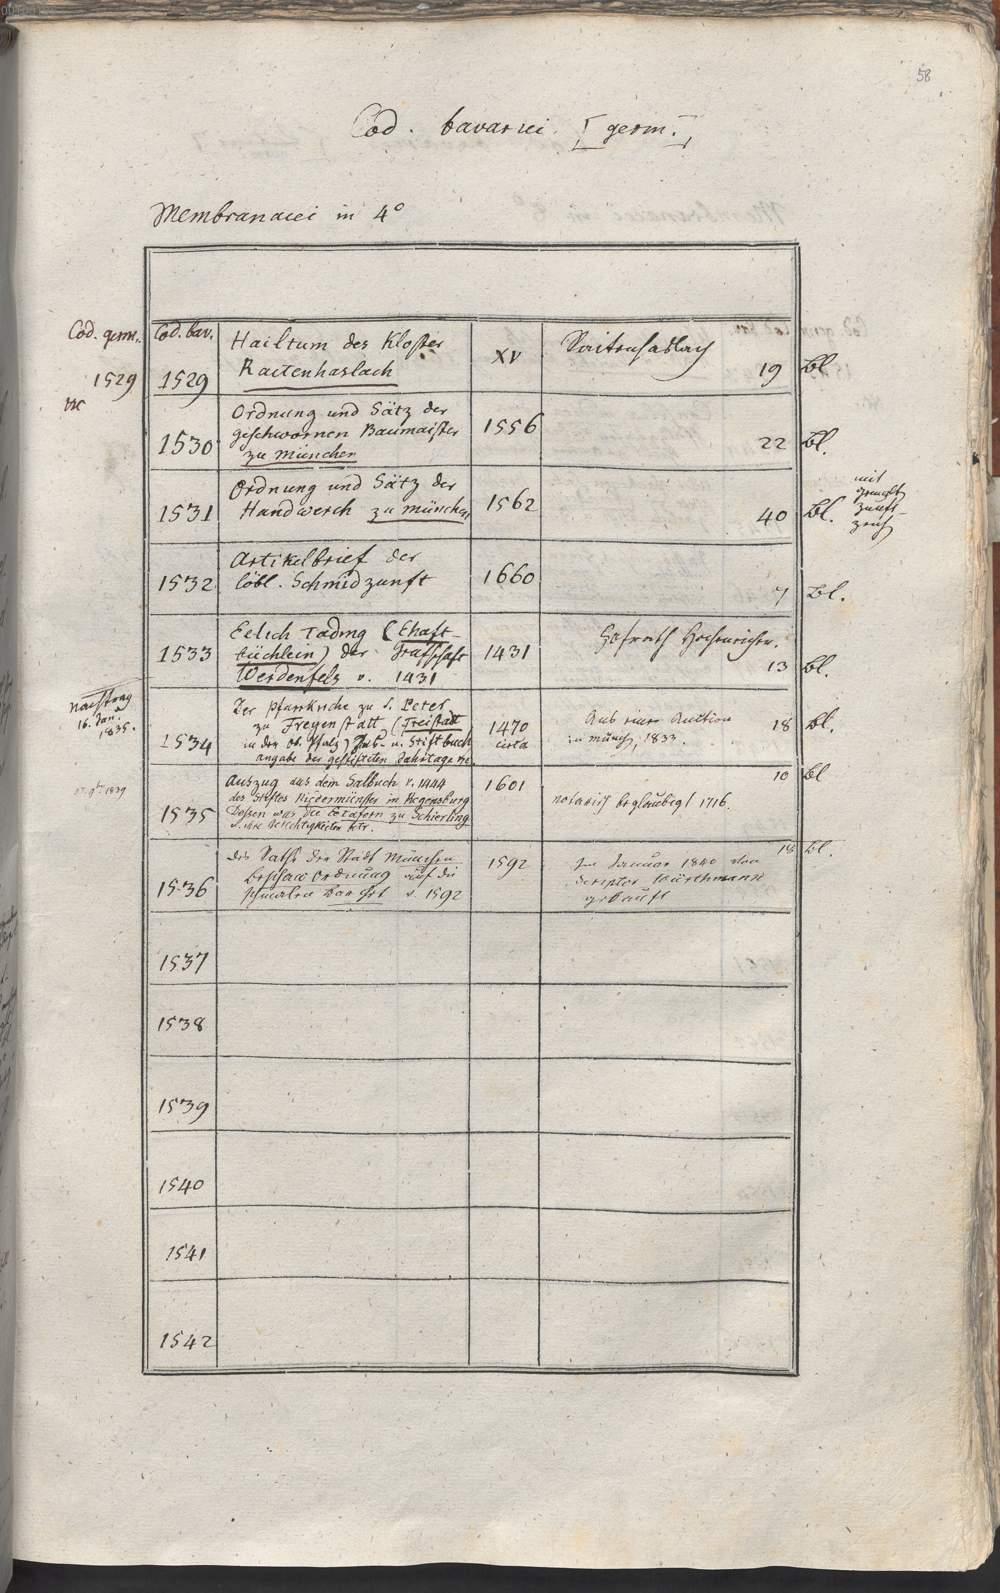 58
Cod. bavarici [germ.]
Membranacei in 4°
Cod. germ. Cod. bav.
1529 1529 Hailtum des Kloster XV Raitenhaslach 19 Bl
Raitenhaslach
1530 Ordnung und Sätz der 1556 22 Bl.
geschwornen Baumaister
zu München
1531 Ordnung und Sätz der 1562 40 Bl. mit
Handwerch zu München
1532 Artikelbrief der 1660 7 Bl.
löbl. Schmidzunft
1533 Eelich Tading (Ehaft- 1431 Hofrath 13 Bl.
büchlein) der Grafschaft
Werdenfels v. 1431
Nachtrag
16. Jan.
1835.
1534 Der Pfarrkirche zu S. Peter 1470 Aus einer Auction 18 Bl.
zu Freyenstatt (Freistadt circa in München, 1833.
in der ob. Pfalz) Salb- u. Stiftbuch
angabe der gestifteten Jahrtage etc.
1839
1535 Auszug aus dem Salbuch v. 1444 1601 notarisch beglaubigt 1716. 10 Bl
des Stiftes Niedermünster in Regensburg
Dessen was die Tafern zu Schierling
u. ihre Gerechtigkeiten betr.
1536 des Raths der Stadt München 1592 Im Januar 1840 von 18 Bl.
Beschau Ordnung auf die Scriptor Würthmann
v. 1592 gekauft
1537
1538
1539
1540
1541
1542